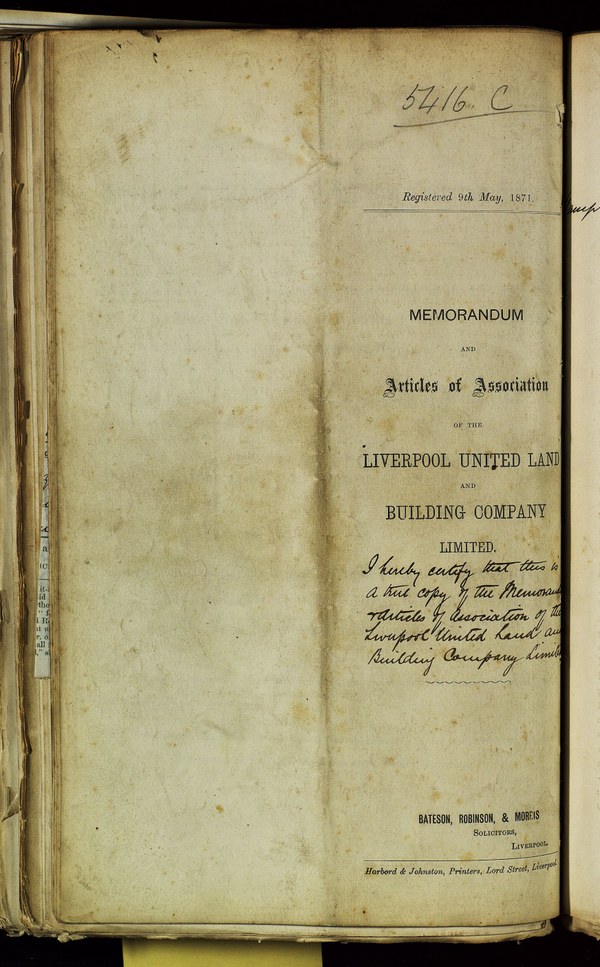 5416 C
Registered 9th May, 1871.
MEMORANDUM
AND
Articles of Association
OF THE
LIVERPOOL UNITED LAND
AND
BUILDING COMPANY
LIMITED.
I hereby certify that this is
a true copy of the Memorand
& Articles of Association of the
Liverpool United Land and
Building Company Limited
BATESON, ROBINSON, & MORRIS
SOLICITORS,
LIVERPOOL.
Harbord & Johnston, Printers, Lord Street, Liverpool.